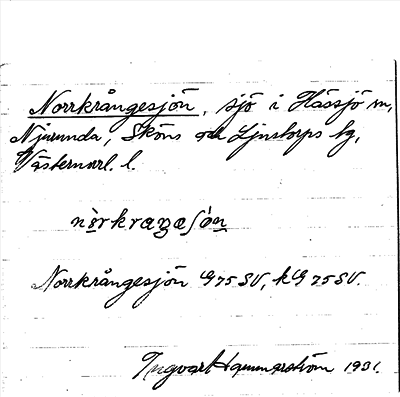 Norrkrångesjön, sjö i Hässjö sn,
Njurunda, Sköns och Ljustorps tg,
Västernorrl. l.
nòrkraŋesǿn
Norrkrångesjön G 75 SV, kG 75 SV.
Ingvar Hammarström 1931.